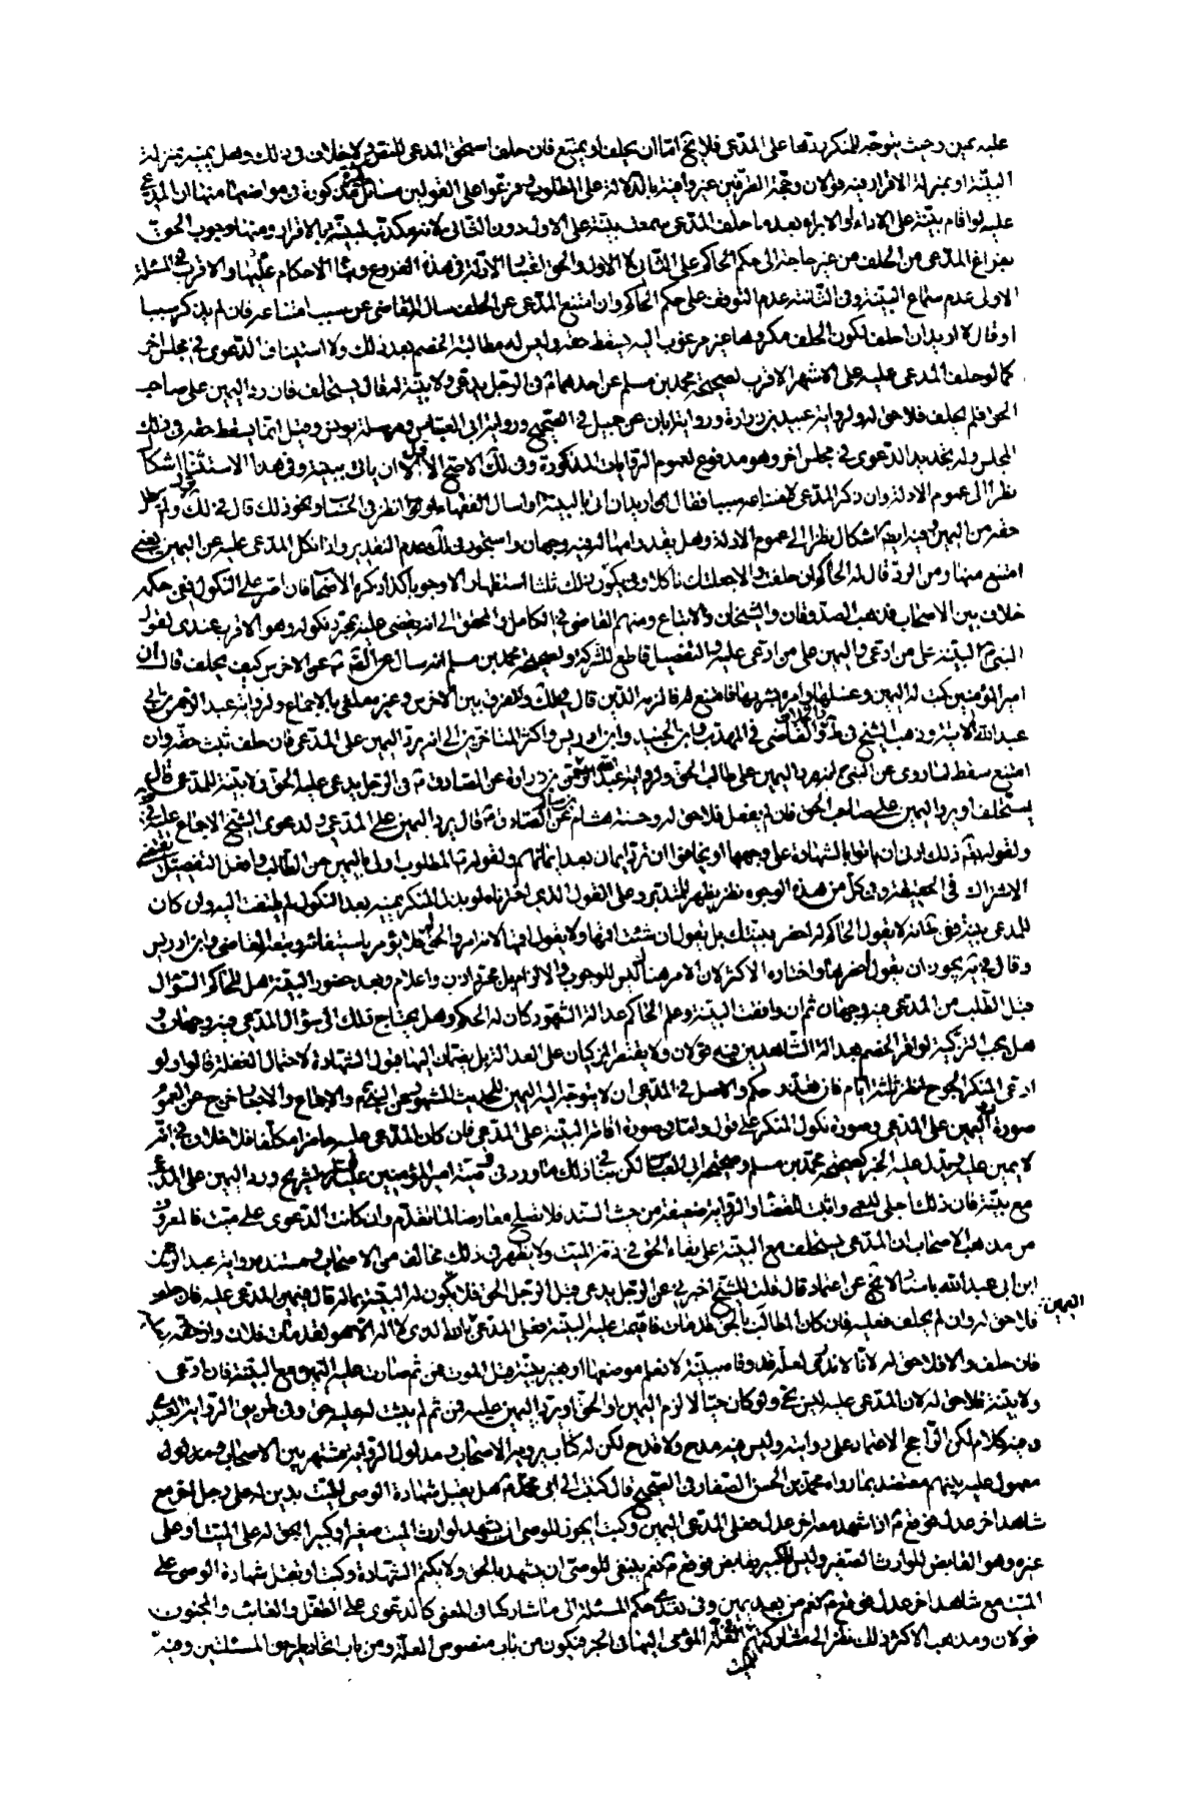 عليه يمين وحيث يتوجه للمنكر ردها على المدعي فلا يخ اما ان يحلف او يمتنع فان حلف استحق المدعى للنقض لا خلاف في ذلك وهل يمينه بمنزلة
البينة او بمنزلة الاقرار فيه قولان وحجة الفريقين غير وافية بالدلالة على المطلوب وفرعوا على القولين مسائل مذكورة في مواضعها منها ان المدعى
عليه لو اقام بينة على الاداء او الابراء بعد ما حلف المدعي سمعت بينته على الاول دون الثاني لانه مكذب لبينته بالاقرار ومنها وجوب الحق
بفراغ المدعي من الحلف من غير حاجة الى حكم الحاكم على الثاني لا الاول والحق الادلة في هذه الفروع الاحكام عليها والاقرب في المسئلة
الاولى عدم سماع البينة وفي الثانية عدم التوقف على حكم الحاكم وان امتنع المدعي عن الحلف سال القاضي عن سبب امتناعه فان لم يذكر سببا
او قال لا اريد ان احلف لكون الحلف مكروها غير مرغوب اليه يسقط حقه وليس له مطالبة الخصم بعد ذلك ولا استيناف الدعوى في مجلس اخر
كما لو حلف المدعى عليه على الاشهر الاقرب لصحيحة محمد بن مسلم عن احدهما في الرجل يدعي ولا بينة له قال يستحلفه فان رد اليمين على صاحب
الحق فلم يحلف فلا حق له ولرواية عبيد بن زرارة ورواية ابان عن جميل في الصحيح ورواية ابي العباس ومرسلة يونس وقيل انما يسقط حقه في ذلك
المجلس وله تجديد الدعوى في مجلس اخر وهو مدفوع لعموم الروايات المذكورة وفي لك الاصح الاول الا ان ياتي ببينة وفي هذا الاستثناء اشكال
نظرا الى عموم الادلة وان ذكر المدعي لامتناعه سببا فقال اريد ان اتي بالبينة او اسال الفقهاء او انظر في الحساب ونحو ذلك قال في لك ترك ولم يبطل
حقه من اليمين وفيه ايضا اشكال نظرا الى عموم الادلة وهل يقدر امهاله فيه وجهان واستجود في لك عدم التقدير واذا نكل المدعى عليه عن اليمين بمعنى
امتنع منها ومن الرد قال له الحاكم ان حلفت والا جعلتك ناكلا وفي يكرر ذلك ثلثا استظهارا لا وجوبا كذا ذكره الاصحاب فان اصر على النكول ففي حكمه
خلاف بين الاصحاب فذهب الصدوقان والشيخان والاتباع ومنهم القاضي في الكامل والمحقق الى انه يقضى عليه بمجرد نكوله وهو الاقرب عندي لقول
النبي البينة على من ادعى واليمين على من ادعي عليه والتفصيل قاطع للشركة ولصحيحة محمد بن مسلم انه سال عن الاخرس كيف يحلف قال ان
امير المؤمنين كتب له اليمين وغسلها وامره بشربها فامتنع فالزمه الدين قال في لك والفرق بين الاخرس وغيره ملغى بالاجماع ولرواية عبد الرحمن بن ابي
عبد الله الاتية وذهب الشيخ في ط وف والقاضي في المهذب وابن الجنيد وابن ادريس واكثر المتاخرين الى انه يرد اليمين على المدعي فان حلف ثبت حقه وان
امتنع سقط لما روى عن النبي انه رد اليمين على طالب الحق ولرواية عبيد بن زرارة عن الصادق في الرجل يدعى عليه الحق ولا بينة للمدعي قال
يستحلف او يرد اليمين على صاحب الحق فان لم يفعل فلا حق له وحسنة هشام عن الصادق قال يرد اليمين على المدعي ولدعوى الشيخ الاجماع عليه
ولقوله تعالى ذلك ادنى ان ياتوا بالشهادة على وجهها او يخافوا ان ترد ايمان بعد ايمانهم ولقوله المطلوب اولى باليمين من الطالب وافعل التفضيل
الاشتراك في الحقيقة وفي كل من هذه الوجوه نظر يظهر للمتدبر وعلى القول الذي اخترناه لو بذل المنكر يمينه بعد النكول لم يلتفت اليه وان كان
للمدعي بينة لا يقول الحاكم له احضر بينتك بل يقول ان شئت اقمها ولا يقول اقمها لانه امر والحق له فلا يؤمر باستيفائه ومنعه القاضي وابن ادريس
وقال في يه يجوز ان يقول احضرها واختاره الاكثر لان الامر هنا ليس للوجوب والالزام بل مجرد اذن واعلام وبعد حضور البينة هل للحاكم السؤال
قبل الطلب من المدعي فيه وجهان ثم ان وافقت البينة وعلم الحاكم عدالة الشهود كان له الحكم وهل يحتاج ذلك الى سؤال المدعي فيه وجهان و
هل يجب التزكية لو اقر الخصم بعدالة الشاهدين فيه قولان ولا يقتصر المزكيان على العدالة بل يضمان اليها قبول الشهادة لاحتمال الغفلة قالوا ولو
ادعى المنكر الجرح انظر ثلثة ايام فان تعذر حكم والاصل في المدعي ان لا يتوجه اليه اليمين للحديث المشهور عن النبي والاجماع والاخبار خرج عن العموم
صورة رد اليمين على المدعي وصورة نكول المنكر على قول واما في صورة اقامة البينة على المدعي فان كان المدعى عليه حاضرا مكلفا فلا خلاف في انه
لا يمين عليه ويدل عليه الخبر كصحيحة محمد بن مسلم وصحيحة ابي العباس لكن ينافي ذلك ما ورد في وصية امير المؤمنين لشريح ورد اليمين على المدعي
مع بينته فان ذلك اجلى للعمى واثبت للقضاء والرواية ضعيفة من حيث السند فلا تصلح معارضا لما تقدم وان كانت الدعوى على ميت فالمعروف
من مذهب الاصحاب ان المدعي يستحلف مع البينة على بقاء الحق في ذمة الميت ولا يظهر في ذلك مخالف من الاصحاب ومستنده رواية عبد الرحمن
ابن ابي عبد الله باسناد عن قال قلت للشيخ اخبرني عن الرجل يدعي قبل الرجل الحق فلا يكون له البينة بماله قال فيمين المدعى عليه فان حلف
اليمين
فلا حق له وان لم يحلف فعليه فان كان المطالب بالحق قد مات فاقيمت عليه البينة فعلى المدعي بالله الذي لا اله الا هو لقد مات فلان وان حقه
فان حلف والا فلا حق له لانا لا ندري لعله قد وفاه ببينة لا نعلم موضعها او بغير بينة قبل الموت فمن ثم صارت عليه اليمين مع البينة فان ادعى
ولا بينة فلا حق له لان المدعى عليه ليس بحي ولو كان حيا لالزم اليمين او الحق او يرد اليمين عليه فمن ثم لم يثبت له عليه حق وفي طريق الرواية
وفيه كلام لكن الراجح الاعتماد على روايته وليس فيه مدح ولا قدح لكن له كتاب يرويه الاصحاب ومدلول الرواية مشتهر بين الاصحاب ومدلول
معمول عليه بينهم معتضد بما رواه محمد بن الحسن الصفار في الصحيح قال كتبت الى ابي محمد هل يقبل شهادة الوصي للميت بدين له على رجل اخر مع
شاهد اخر عدل فوقع اذا شهد معه اخر عدل فعلى المدعي اليمين وكتب ايجوز للوصي ان يشهد لوارث الميت صغيرا وكبيرا بحق له على الميت او على
غيره وهو القابض للوارث الصغير وليس للكبير بقابض فوقع نعم ينبغي للوصي ان يشهد بالحق ولا يكتم الشهادة وكتب او تقبل شهادة الوصي على
الميت مع شاهد اخر عدل فوقع نعم من بعد يمين وفي تعدي حكم المسئلة الى ما شاركها في المعنى كالدعوى على الطفل والغائب والمجنون
قولان ومذهب الاكثر ذلك نظرا الى مشاركتهم للميت في العلة المومى اليها في الخبر فيكون من باب منصوص العلة ومن باب اتحاد طريق المسئلتين وفيه